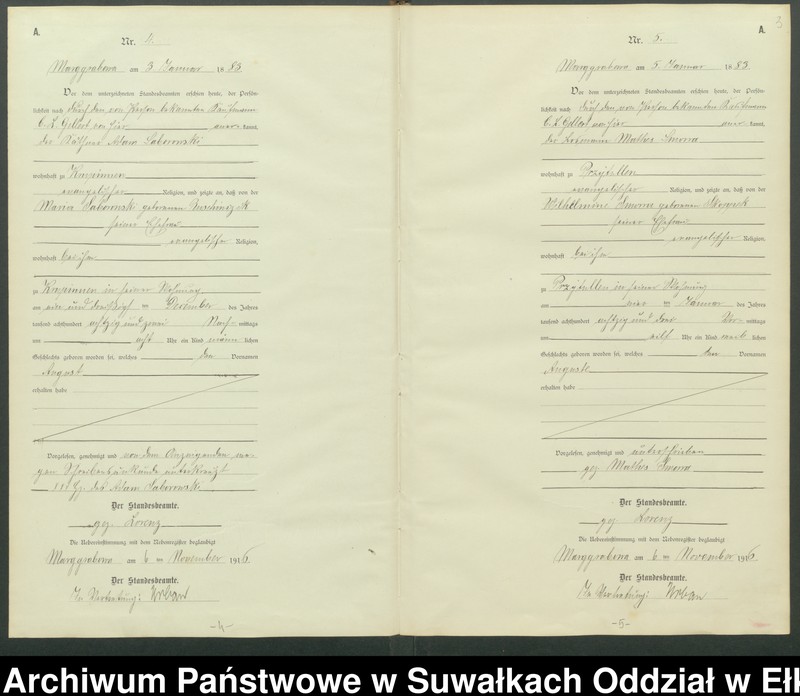 A.
Nr. 4.
Marggrabowa am 3 Januar 1883
Vor dem unterzeichneten Standesbeamten erschien heute, der Persön-
lichkeit nach durch den von Person bekannten
C. L. Gellert von hier aner- kannt,
der Adam Saborowski
wohnhaft zu
evangelischer Religion, und zeigte an, daß von der
Maria Saborowski geborenen
seiner Ehefrau
evangelischer Religion,
wohnhaft bei ihm
zu in seiner Wohnung
am ein und dreißigsten December des Jahres
tausend achthundert achtzig und zwei Nach- mittags
um acht Uhr ein Kind männ lichen
Geschlechts geboren worden sei, welches den Vornamen
August
erhalten habe
Vorgelesen, genehmigt und von dem Anzeigenden we-
gen Schreibensunkunde unterkreuzt
+++ Hz. des Adam Saborowski
Der Standesbeamte.
gez. Lorenz
Die Uebereinstimmung mit dem Nebenregister beglaubigt
Marggrabowa am 6 ten November 1916
Der Standesbeamte.
In Vertretung: Urban
-4-
3
A.
Nr. 5.
Marggrabowa am 5 Januar 1883.
Vor dem unterzeichneten Standesbeamten erschien heute, der Persön-
lichkeit nach durch den von Person bekannten
C. L. Gellert von hier aner- kannt,
der Losmann Mathes Smora
wohnhaft zu Przytullen
evangelischer Religion, und zeigte an, daß von der
Wilhelmine Smora geborenen
seiner Ehefrau
evangelischer Religion,
wohnhaft bei ihm
zu Przytullen in seiner Wohnung
am ten Januar des Jahres
tausend achthundert achtzig und drei Vor- mittags
um elf Uhr ein Kind weib lichen
Geschlechts geboren worden sei, welches den Vornamen
Auguste
erhalten habe
Vorgelesen, genehmigt und unterschrieben
gez. Mathes Smora
Der Standesbeamte.
gez. Lorenz
Die Uebereinstimmung mit dem Nebenregister beglaubigt
Marggrabowa am 6 ten November 1916
Der Standesbeamte.
In Vertretung: Urban
-5-
Archiwum Państwowe w Suwałkach Oddział w Eł